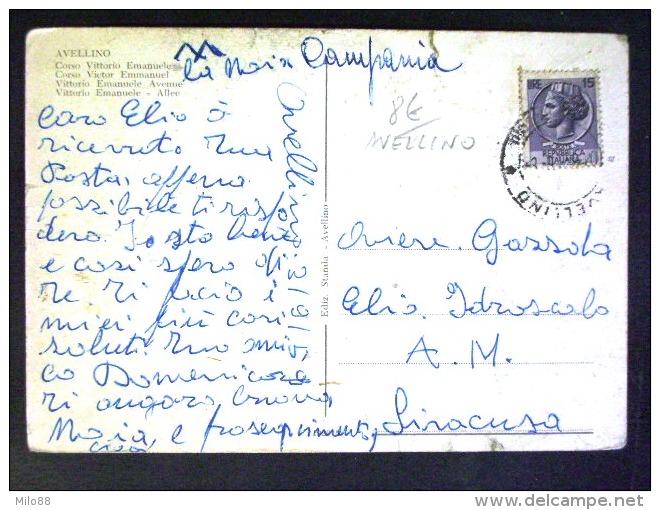 AVELLINO
Corso Vittorio Emanuele
Corso Victor Emmanuel
Vittorio Emanuele Avenue
Vittorio Emanuele - Allee
Campania
Caro Elio ò
ricevuto tua
Posta, appena
possibile ti rispon
derò. Io sto bene
e così spero di
te. Ti
miei più cari
saluti. tuo ami
co Domenico
ti auguro buona
e proseguimento,
Avellino
Ediz. Standa - Avellino
8€
AVELLINO
LIRE 15
REPUBBLICA
ITALIANA
AVELLINO
Aviere Gazzola
Elio Idroscalo
A. M.
Siracusa
Milo88
delcampe.net